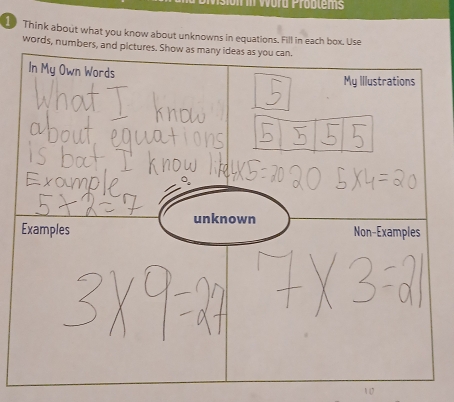 Division in Word Problems
1 Think about what you know about unknowns in equations. Fill in each box. Use
words, numbers, and pictures. Show as many ideas as you can.
In My Own Words
What I know
about equations
is bat I know like
Example
5+2=7
My Illustrations
5
5 5 5 5
4x5=20 20 5x4=20
unknown
Examples
3x9=27
Non-Examples
7x3=21